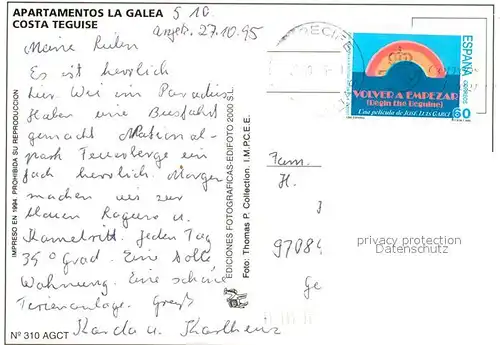 APARTAMENTOS LA GALEA
COSTA TEGUISE
27.10.95
Meine Lieben
Es ist herrlich
hier. Wie im Paradies
Haben eine Busfahrt
gemacht National-
park Feuerberge ein
fach herrlich. Morgen
machen wir zur
blauen u.
Kamelritt. Jeden Tag
35° Grad. Eine tolle
Wohnung. Eine schöne
Ferienanlage. Gruß
u. Karlheinz
Nº 310 AGCT
IMPRESO EN 1994 PROHIBIDA SU REPRODUCCION
EDICIONES FOTOGRAFICAS-EDIFOTO 2000 S.L.
Foto: Thomas P. Collection. I.M.P.C.E.E.
ARRECIFE
ESPAÑA
correos
VOLVER A EMPEZAR
(Begin the Beguine)
Una película de JOSÉ LUIS GARCI
60
Fam.
H.
9708
privacy protection
Datenschutz
Ge